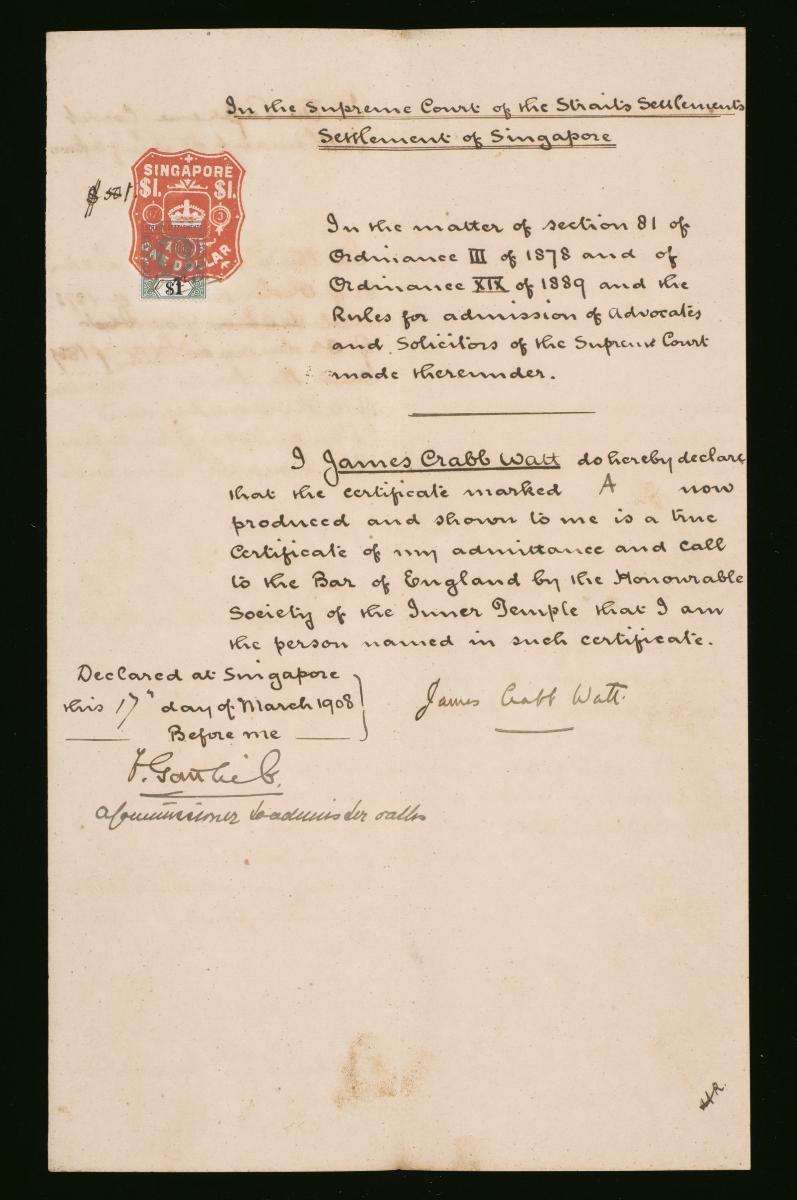 In the Supreme Court of the Straits Settlements
Settlement of Singapore
SINGAPORE
$1. $1.
ONE DOLLAR
$1
In the matter of section 81 of
Ordinance III of 1878 and of
Ordinance XIX of 1889 and the
Rules for admission of Advocates
and Solicitors of the Supreme Court
made thereunder.
I James Crabb Watt do hereby declare
that the certificate marked A now
produced and shown to me is a true
Certificate of my admittance and call
to the Bar of England by the Honourable
Society of the Inner Temple that I am
the person named in such certificate.
Declared at Singapore
this 17" day of March 1908
Before me
James Crabb Watt.
F. Gottlieb.
a Commissioner to administer oaths